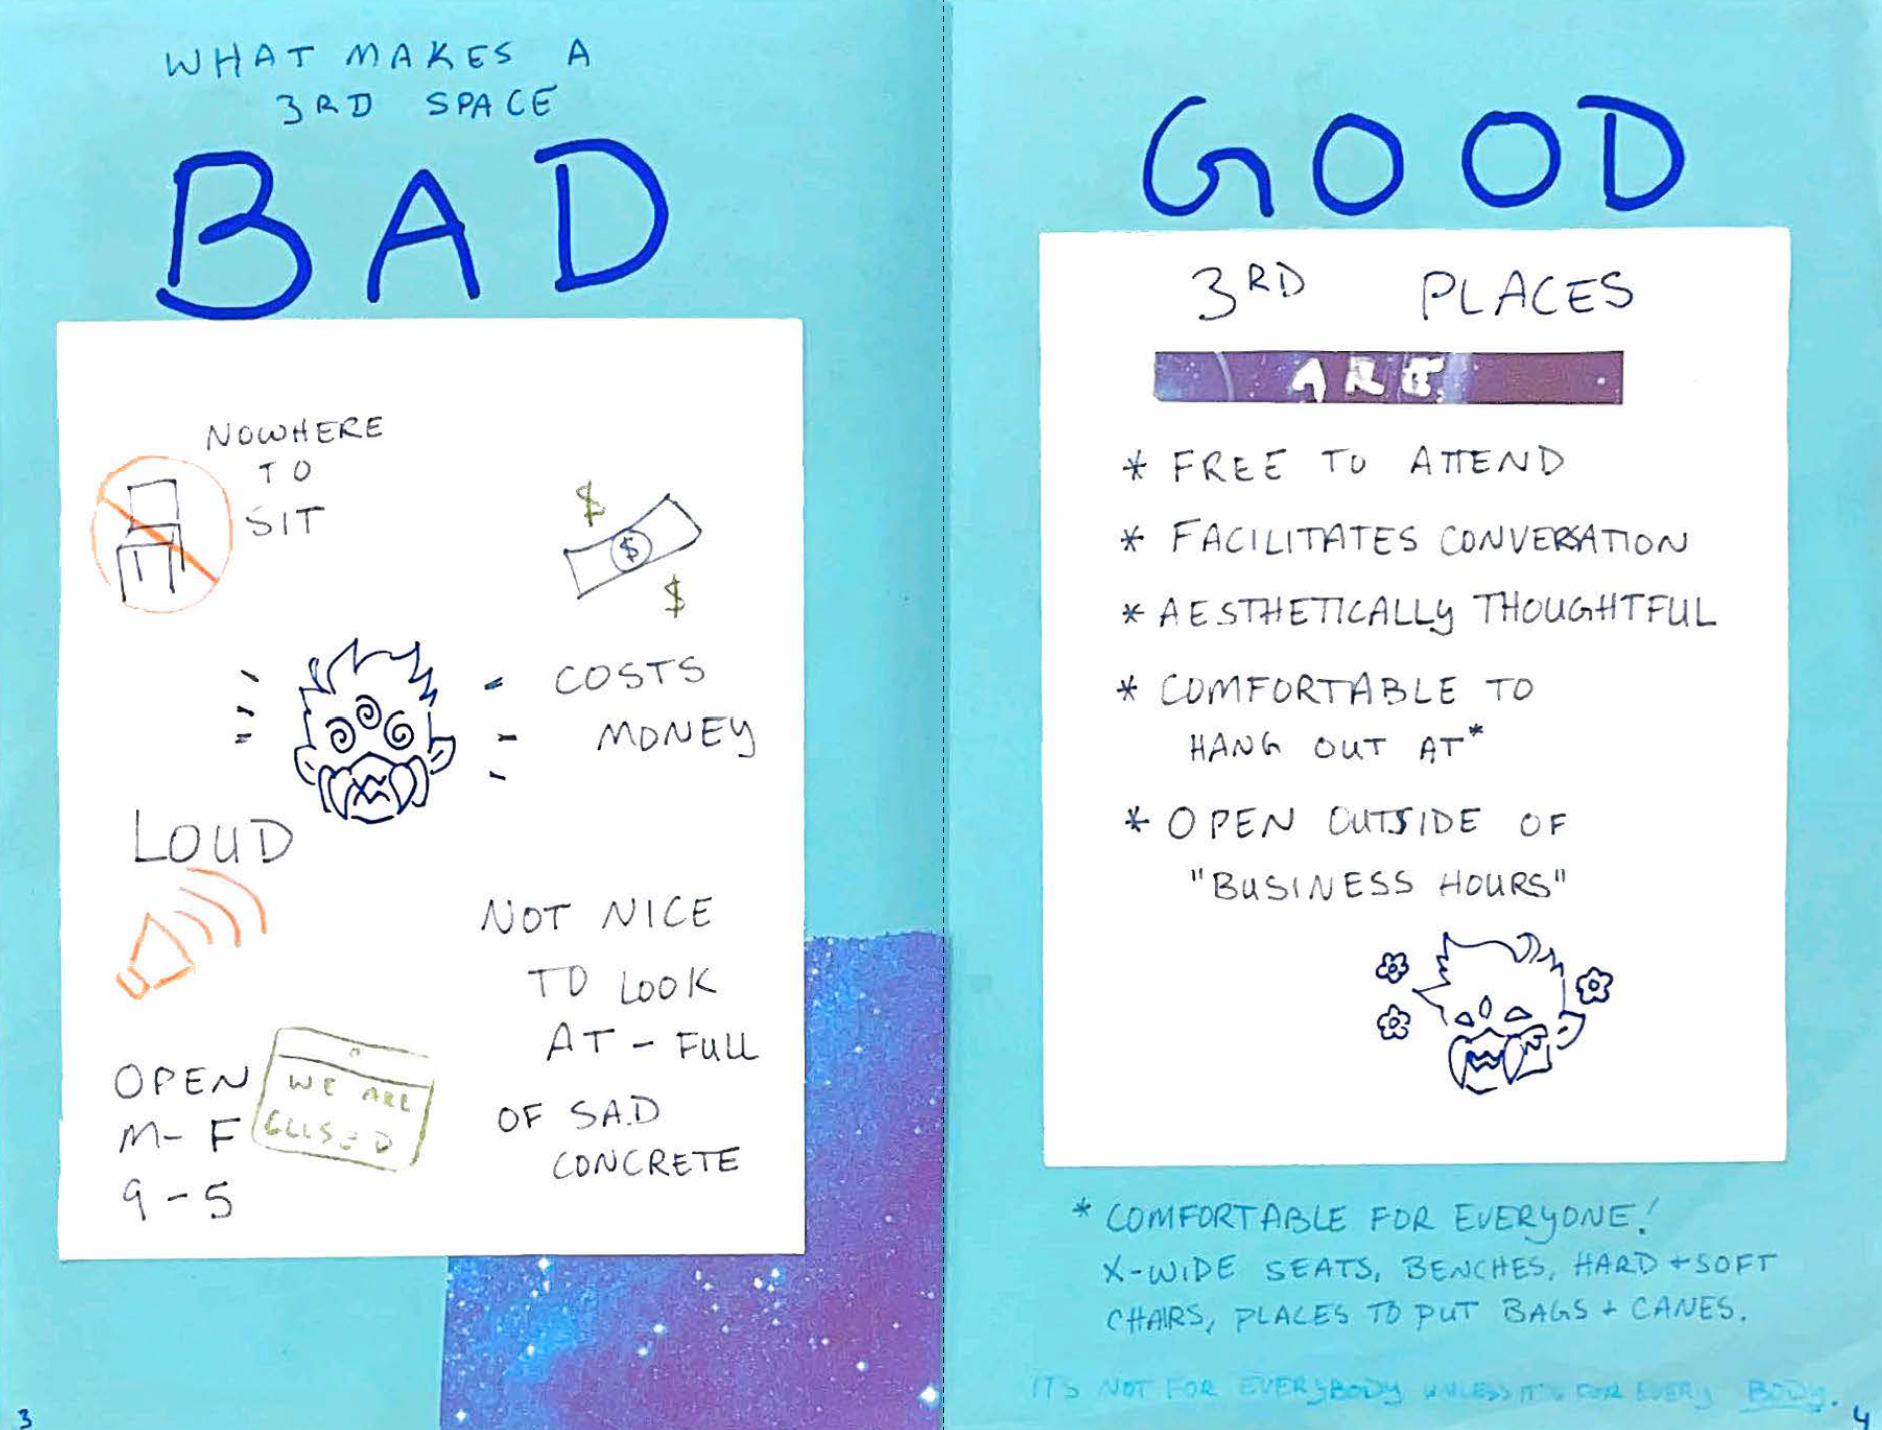 WHAT MAKES A
3RD SPACE
BAD
NOWHERE
TO
SIT
$
$
$
COSTS
MONEY
LOUD
NOT NICE
TO LOOK
AT - FULL
OF SAD
CONCRETE
OPEN
M-F
9-5
WE ARE
CLOSED
3
GOOD
3RD PLACES
ARE
* FREE TO ATTEND
* FACILITATES CONVERSATION
* AESTHETICALLY THOUGHTFUL
* COMFORTABLE TO
HANG OUT AT*
* OPEN OUTSIDE OF
"BUSINESS HOURS"
* COMFORTABLE FOR EVERYONE!
X-WIDE SEATS, BENCHES, HARD + SOFT
CHAIRS, PLACES TO PUT BAGS + CANES.
IT'S NOT FOR EVERYBODY UNLESS IT'S FOR EVERY BODY.
4